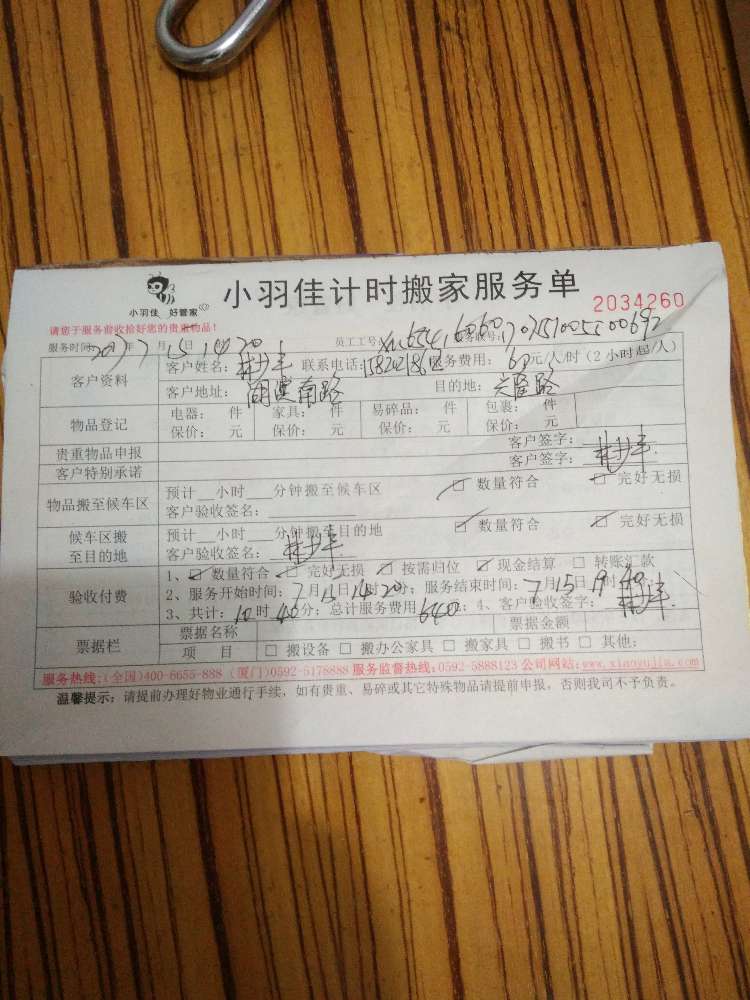 小羽佳 好管家
小羽佳计时搬家服务单
2034260
请您于服务前收拾好您的贵重物品!
服务时间: 2017 年 7 月 15 日 14 20 员工工号:
客户资料
客户姓名: 联系电话: 服务费用: 60 元/人/时(2小时起/人)
客户地址: 目的地: 兴隆路
物品登记
电器: 件 家具: 件 易碎品: 件 包裹: 件
保价: 元 保价: 元 保价: 元 保价: 元
贵重物品申报 客户签字:
客户特别承诺 客户签字:
物品搬至候车区
预计__小时___分钟搬至候车区 □ 数量符合 □ 完好无损
客户验收签名:
候车区搬
至目的地
预计__小时___分钟搬至目的地 □ 数量符合 □ 完好无损
客户验收签名:
验收付费
1、□ 数量符合 □ 完好无损 □ 按需归位 □ 现金结算 □ 转账汇款
2、服务开始时间: 7月15日14时20分; 服务结束时间: 7月15日19时40分;
3、共计: 10时40分; 总计服务费用 640; 4、客户验收签字:
票据栏
票据名称 票据金额
项 目 □ 搬设备 □ 搬办公家具 □ 搬家具 □ 搬书 □ 其他:
服务热线:(全国)400-6655-888 (厦门)0592-5178888 服务监督热线:0592-5888123 公司网站:www.xiaoyujia.com
温馨提示: 请提前办理好物业通行手续, 如有贵重、易碎或其它特殊物品请提前申报, 否则我司不予负责。